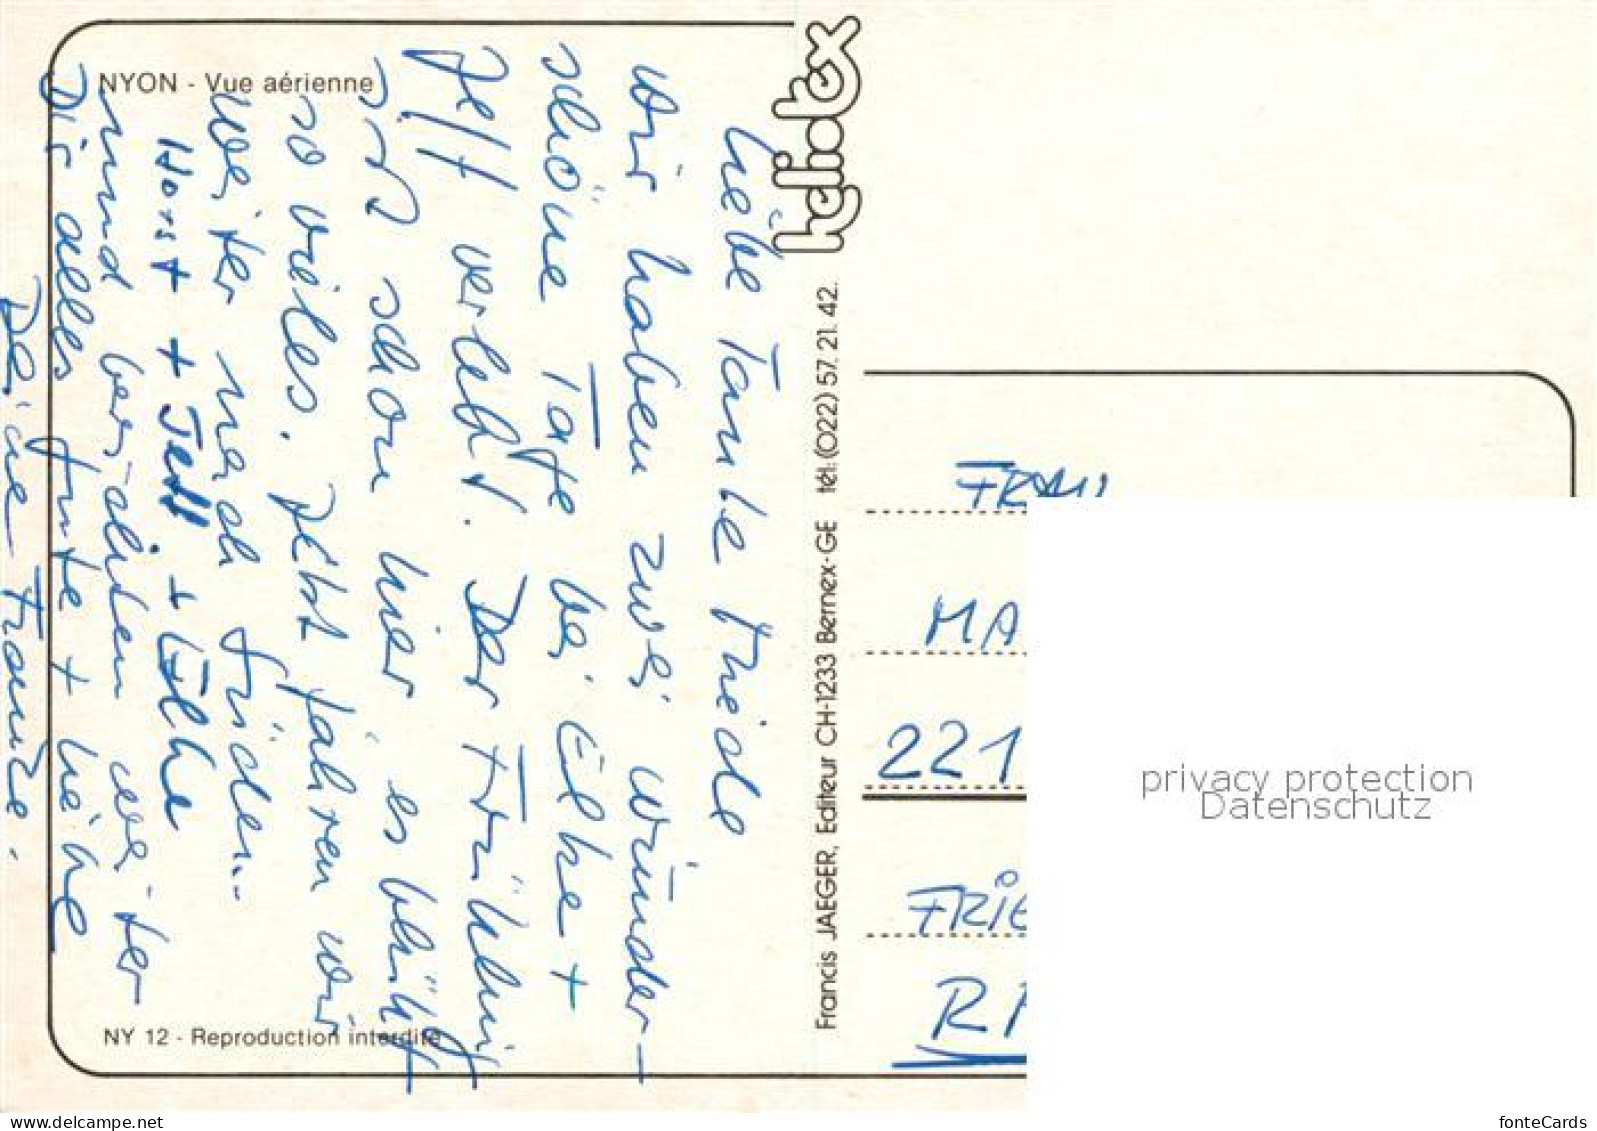 NYON - Vue aérienne
Liebe Tante Friede
wir haben zwei wunder-
schöne Tage bei Eilke +
Jeff verlebt. Der Frühling
ist schon hier es blüht
so vieles. Jetzt fahren wir
weiter nach Süden.
Horst + Jeff + Eilke
und wünschen weiter
Dir alles gute + liebe
Deine Frauke.
NY 12 - Reproduction interdite
heliotex
Francis JAEGER, Editeur CH-1233 Bernex-GE tél: (022) 57. 21. 42.
FRAU
MA
221
FRIE
privacy protection
Datenschutz
NY 12
fonteCards